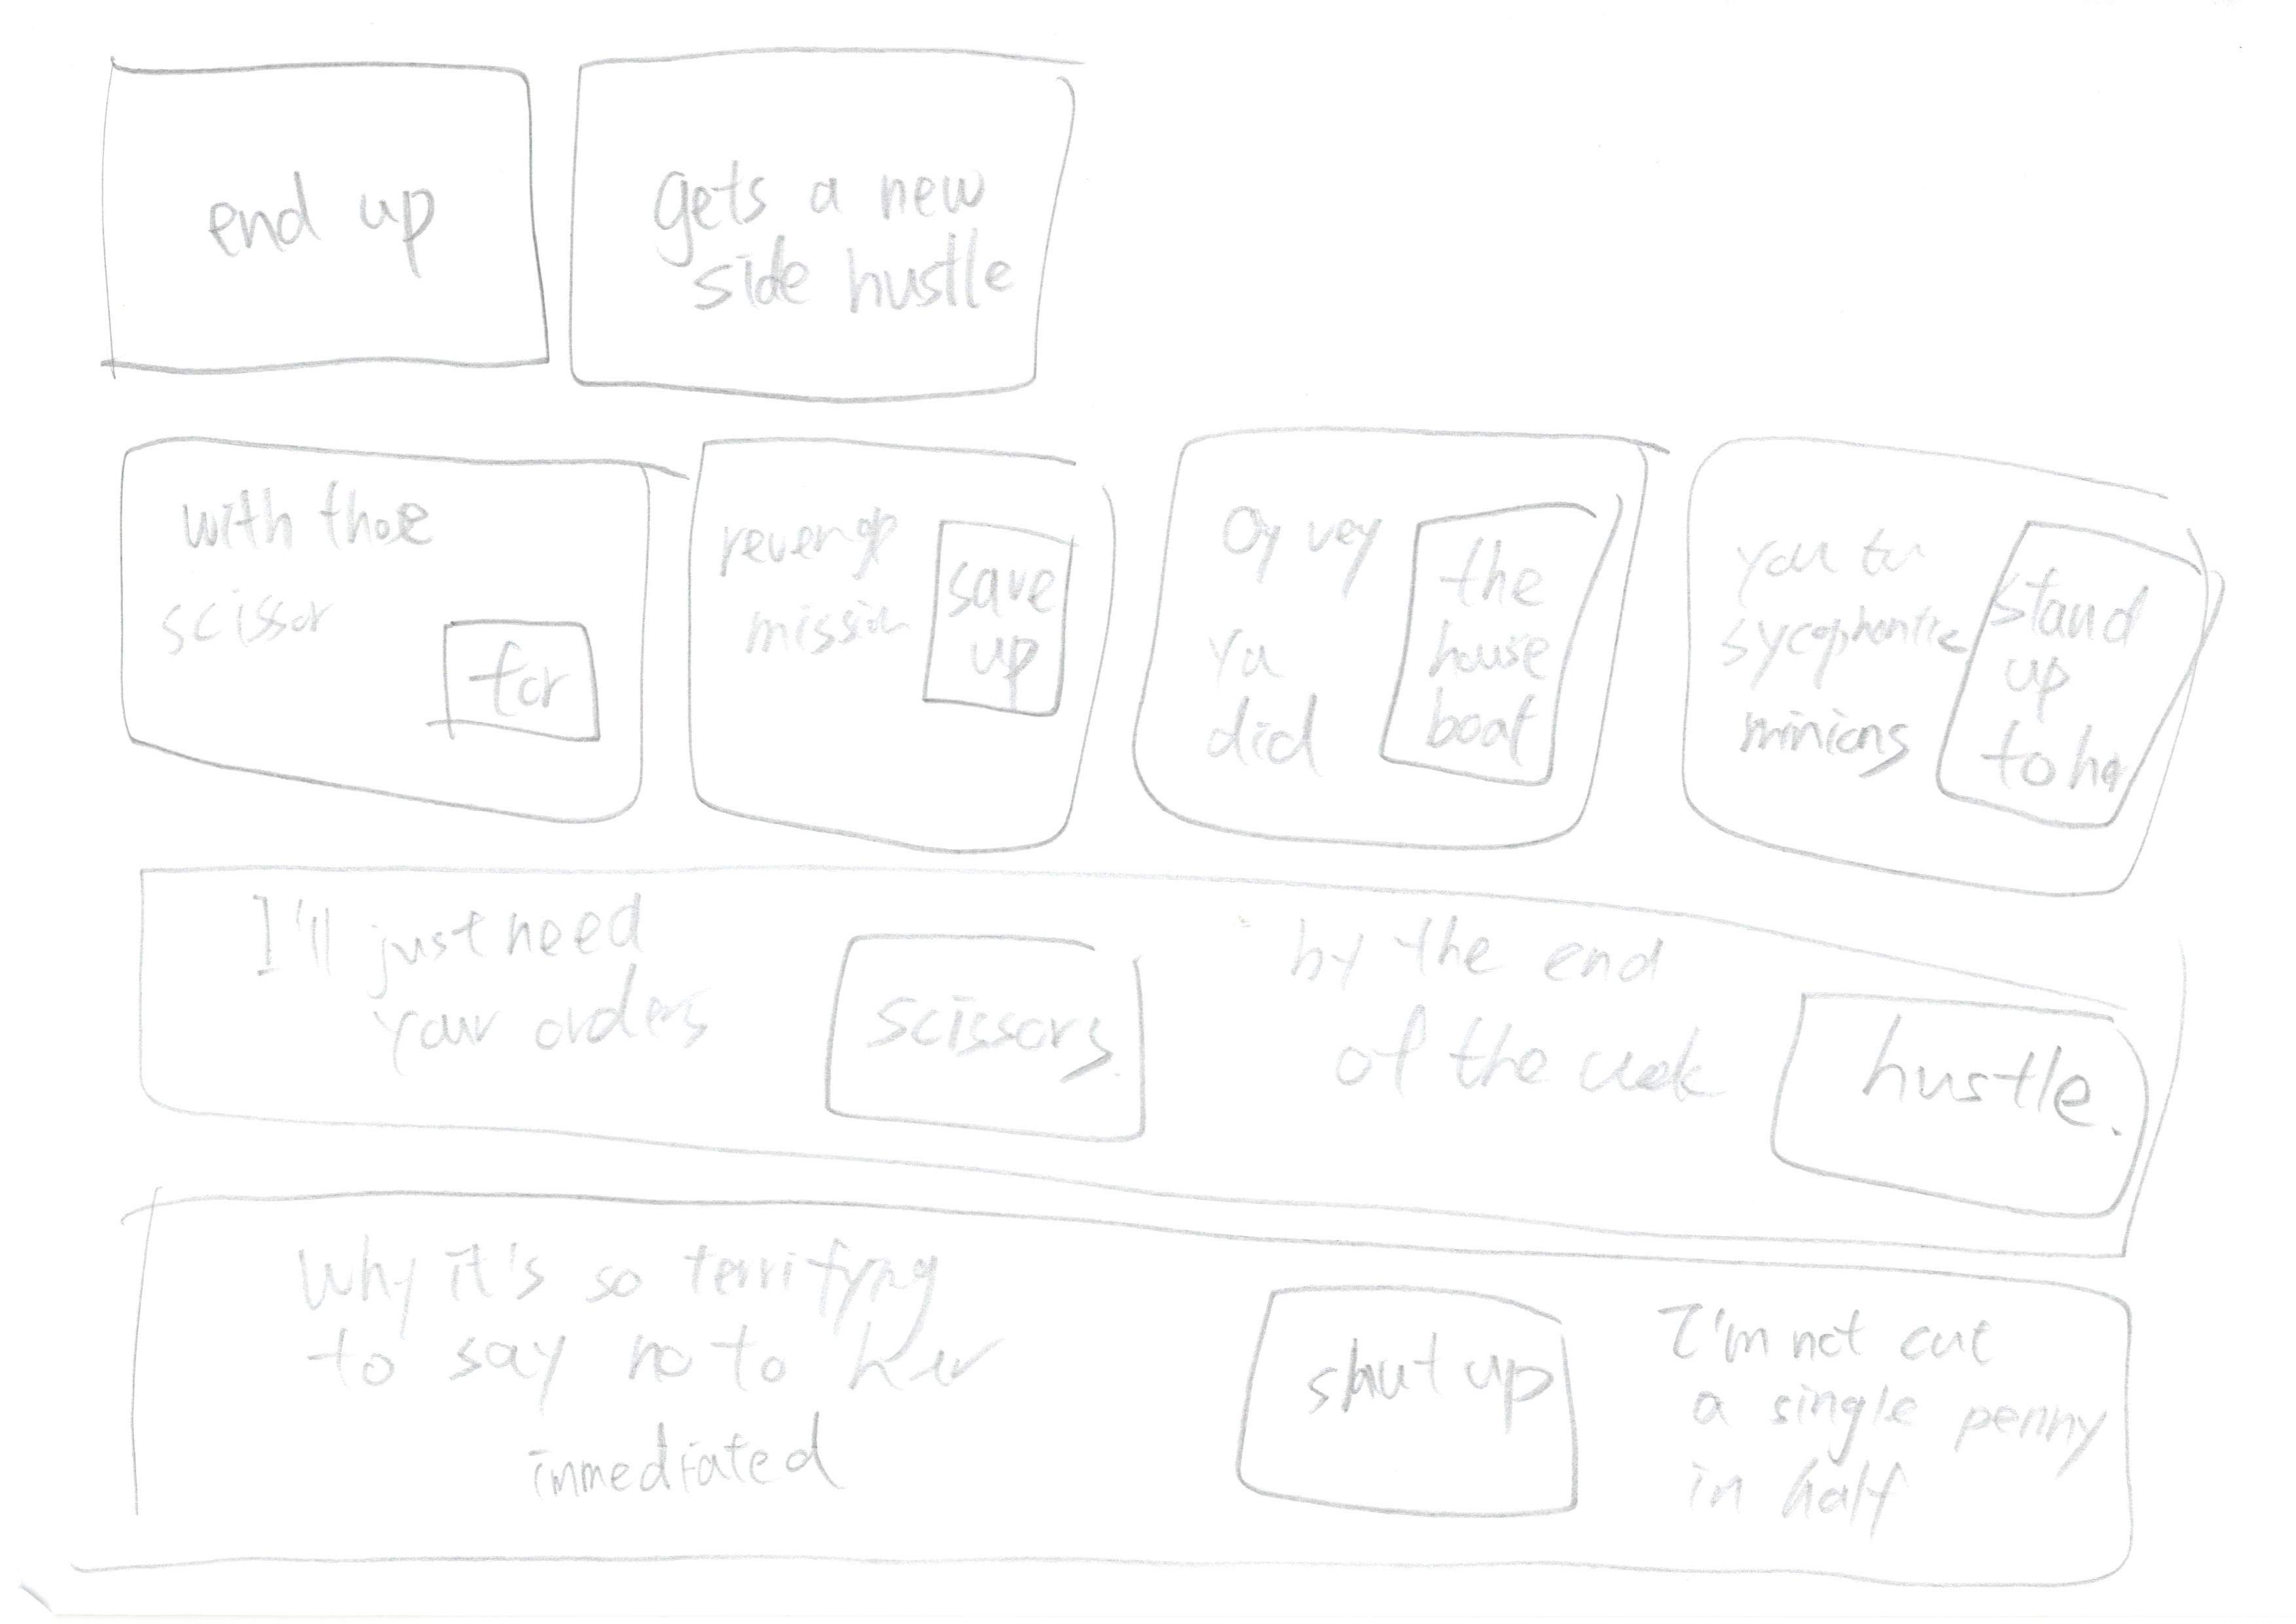 end up
gets a new
side hustle
with those
scissor
for
revenge
mission
save
up
Oy vey
Ya
did
the
house
boat
you tu
sycophantic
minions
stand
up
to her
I'll just need
your orders
scissors.
by the end
of the week
hustle.
Why it's so terrifyng
to say no to her
immediated
shut up
I'm not cut
a single penny
in half